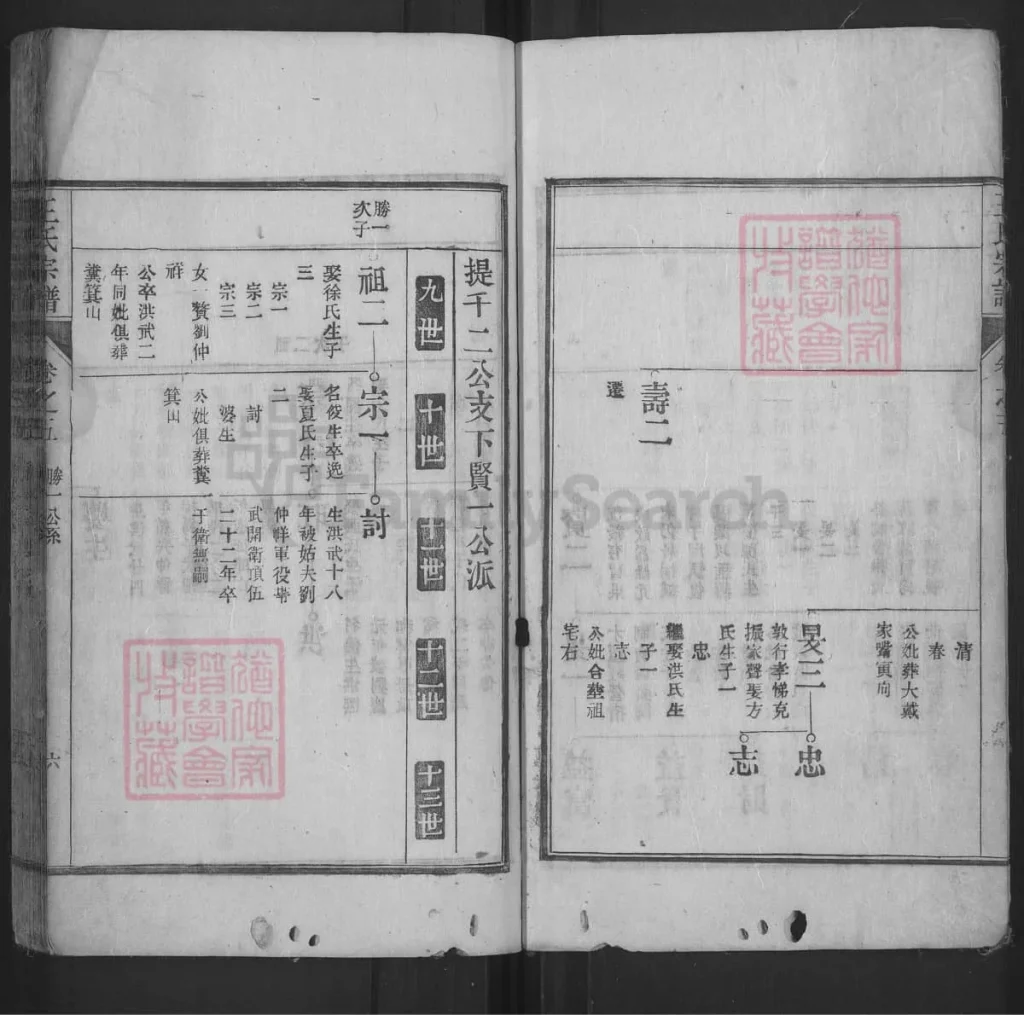 王氏宗譜
清
春
公妣葬大戴
家嘴寅向
旻三
忠
敦行孝悌克
振家聲娶方
氏生子一
忠
志
繼娶洪氏生
子一
志
公妣合塟祖
宅右
壽二
遷
提千二公支下賢一公派
九世
十世
十一世
十二世
十三世
勝一
次子
祖二
宗一
討
娶徐氏生子
三
宗一
宗二
宗三
女一贅劉仲
祥
公卒洪武二
年同妣俱葬
糞箕山
名俊生卒逸
娶夏氏生子
二
討
婆生
公妣俱葬糞
箕山
生洪武十八
年被姑夫劉
仲祥軍役牽
武開衛頂伍
二十二年卒
于衛無嗣
王氏宗譜
卷之五
勝一公系
六
FamilySearch